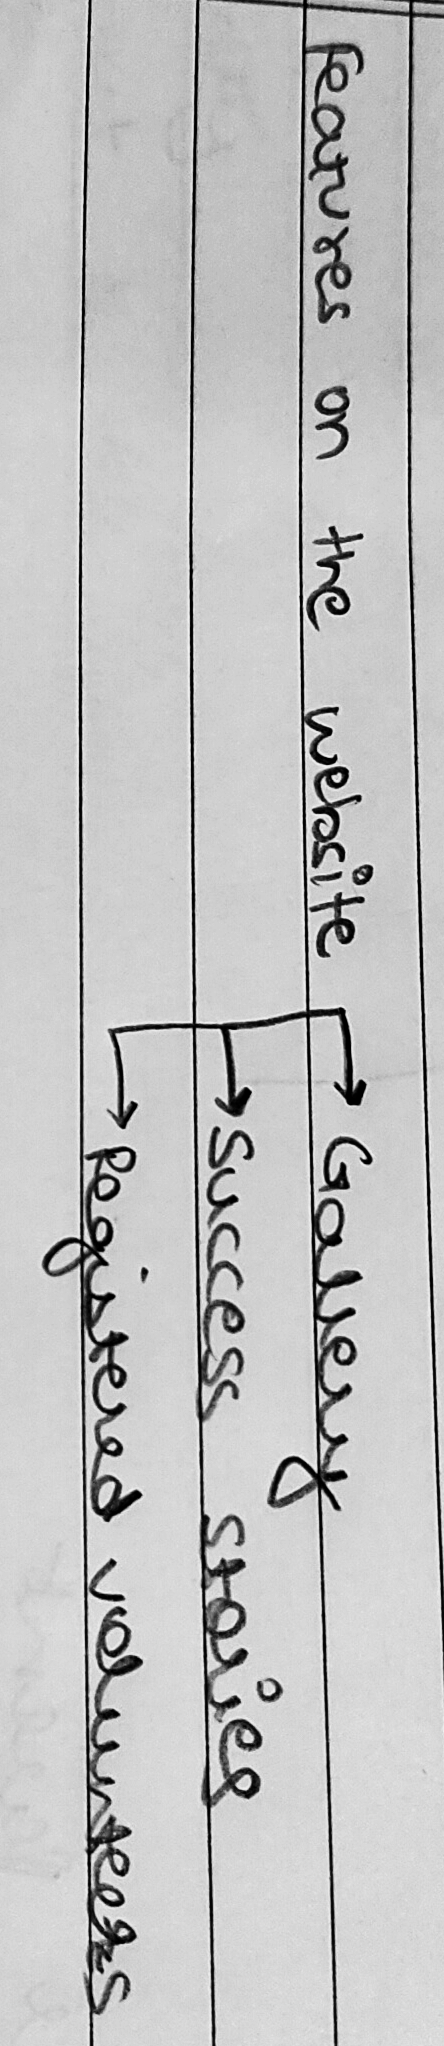 Features on the website → Gallery
→ Success stories
→ Registered volunteers